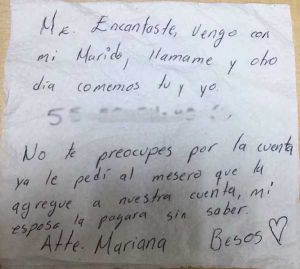 Me. Encantaste, Vengo con
mi Marido, llamame y otro
día comemos tu y yo.
55
No te preocupes por la cuenta
ya le pedí al mesero que la
agregue a nuestra cuenta, mi
esposo la pagara sin saber.
Atte. Mariana Besos ♡